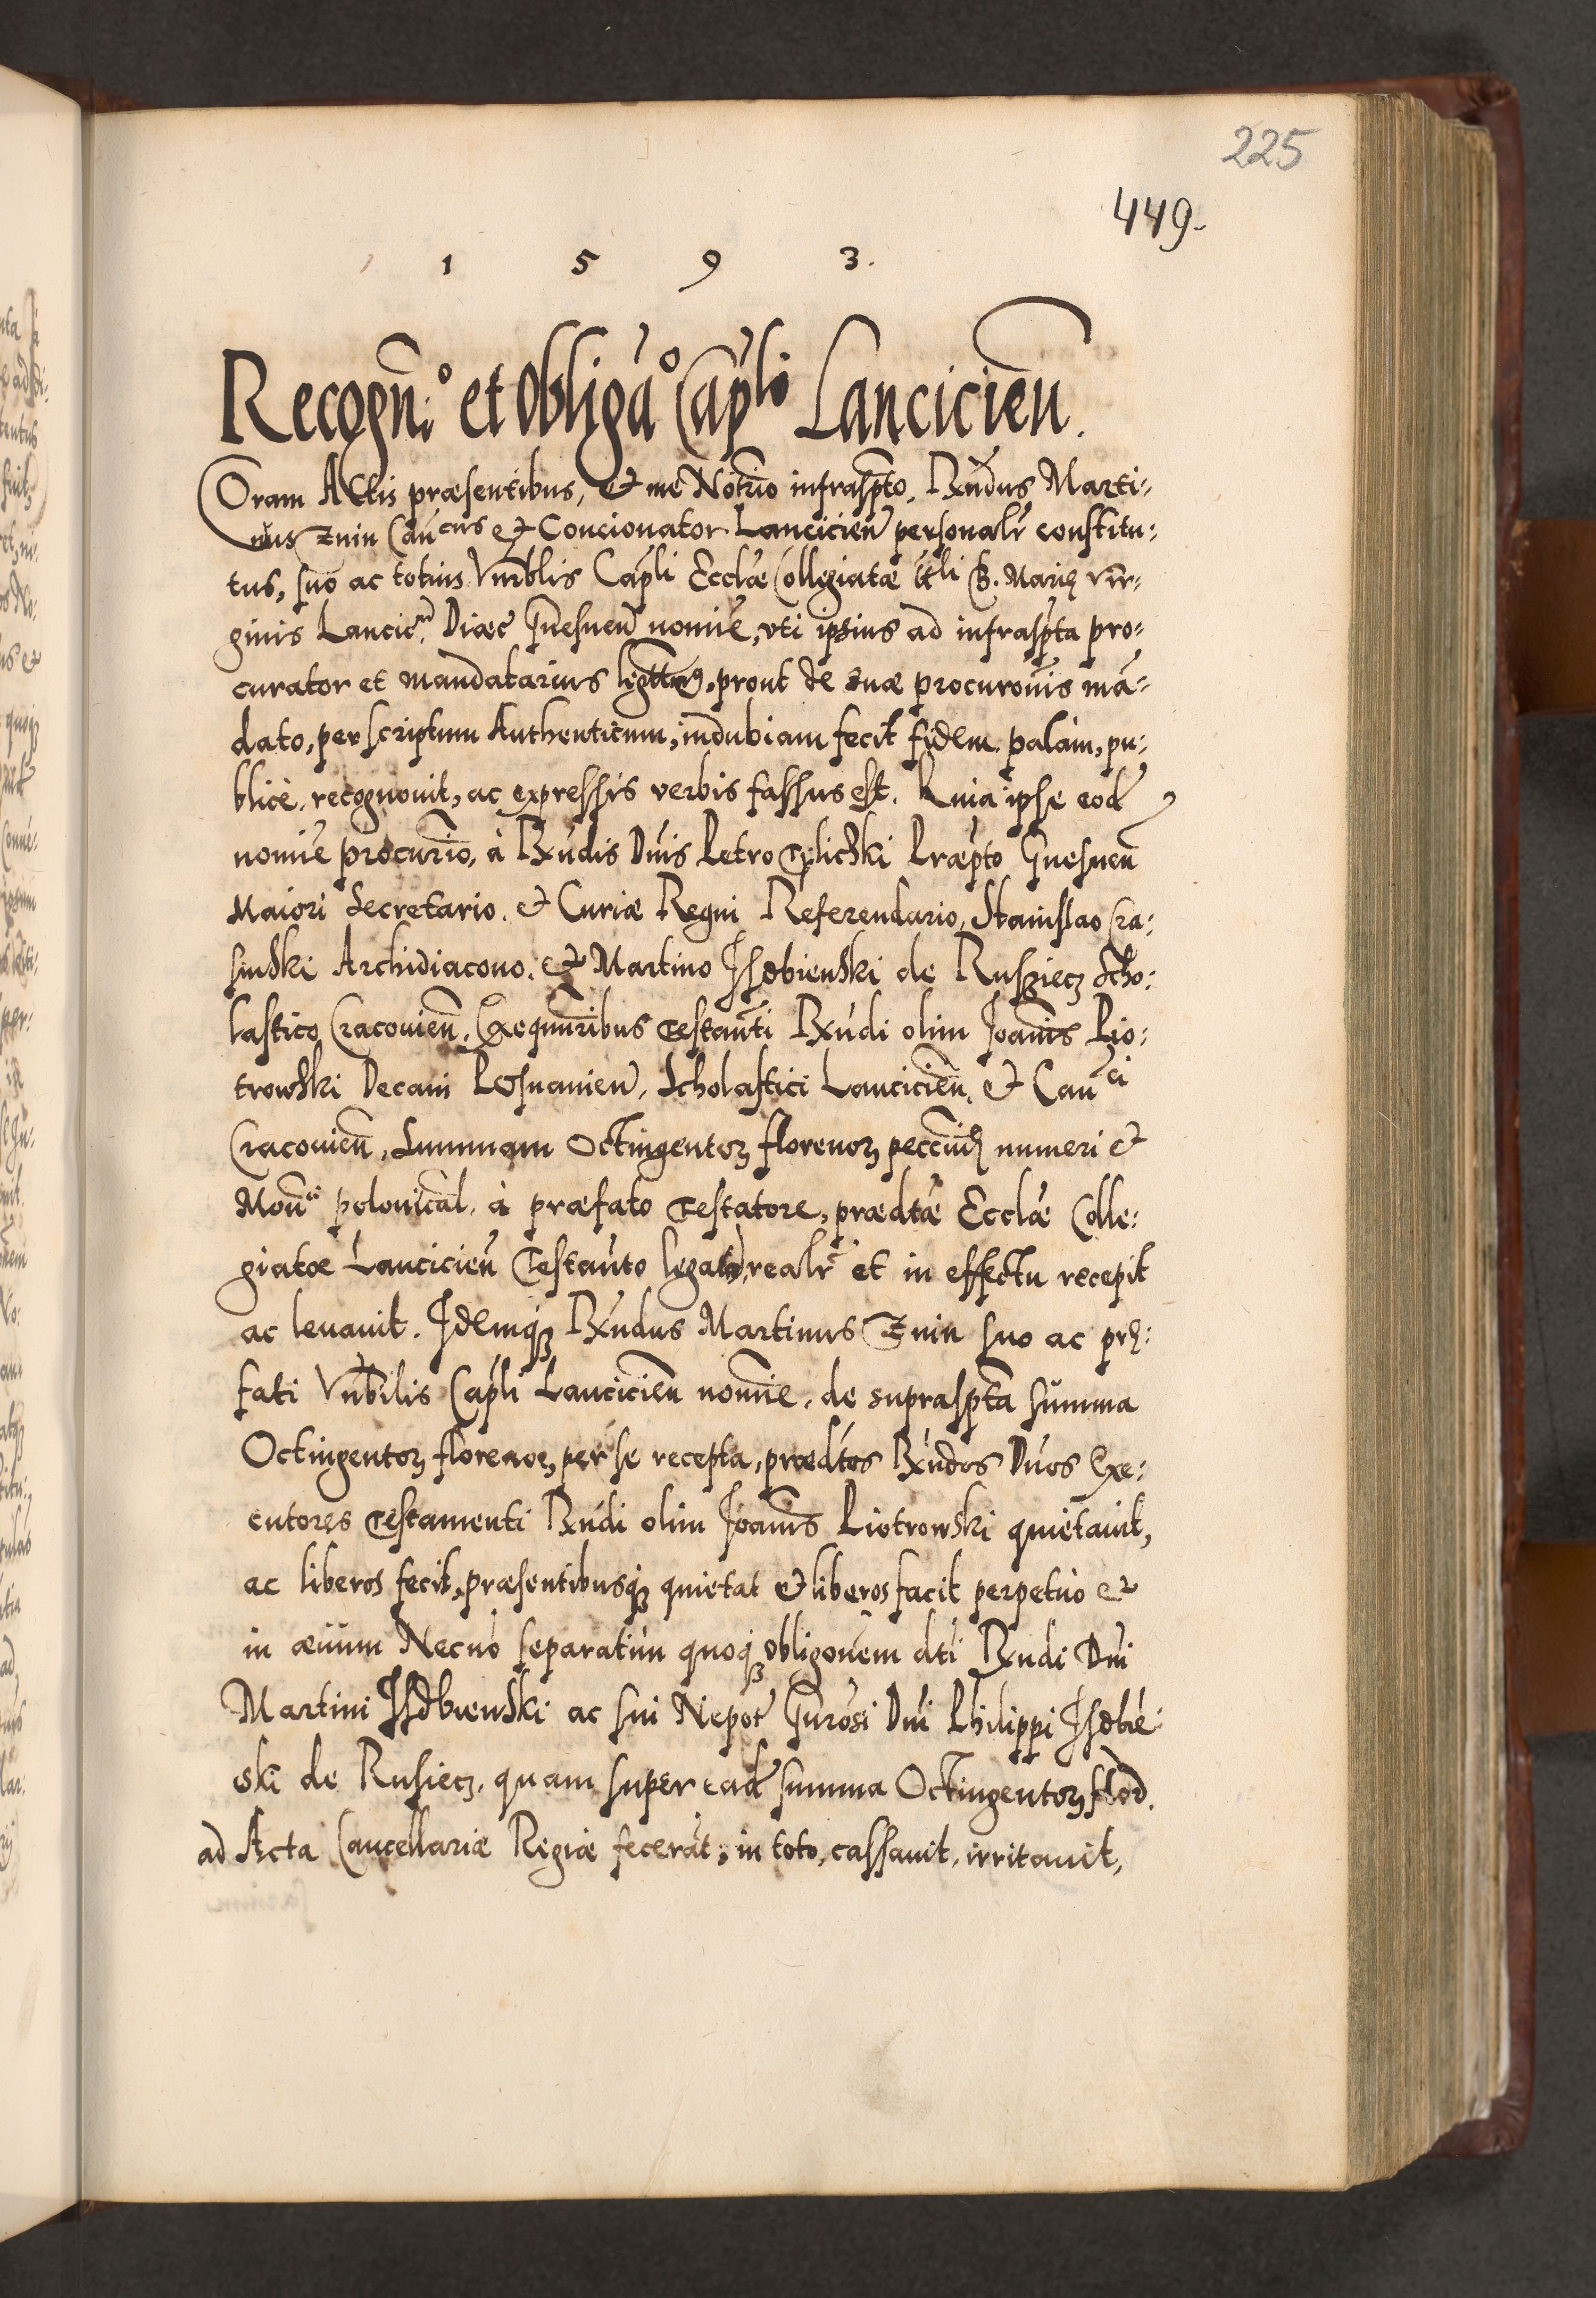 225
449.
1 5 9 3.
Recogn̄io et obliga͠o Capli Lancicien̄.
Coram Actis præsentibus, et me Notrio infraspto, Rx̄ndus Marti-
nus Znin Can̄cus et Concionator Lancicien̄ personalr̄ constitu-
tus, suo ac totius Vn̄rblis Capli Ecclæ Collegiatæ ttli B. Marię Vir-
ginis Lancicn̄ Diæc Gnesnen̄ nomīe, vti ipsius ad infraspta pro-
curator et mandatarius legttimus, prout de suæ procuron̄is mā-
dato, per scriptum Authenticum, indubiam fecit fidem, palam, pu-
blicè, recognouit, ac expressis verbis fassus est. Quia ipse eod̄
nomīe procur̄io, à Rx̄ndis Dn̄is Petro Tyliczki Præpto Gnesnen̄
Maiori Secretario, et Curiæ Regni Referendario, Stanislao Cra-
sinski Archidiacono, et Martino Isdbienski de Rusziecz Scho-
lastico Cracouien̄. Exequu͠ribus Testan̄ti Rx̄ndi olim Joannis Pio-
trowski Decani Posnanien̄, Scholastici Lancicien̄, et Can̄ci
Cracouien̄, Summam Octingentoꝝ florenoꝝ peccunię numeri et
Mon̄æ polonical. à præfato Testatore, prædtæ Ecclæ Colle-
giatæ Lancicien̄ Testan̄to legatā, realr̄ et in effectu recepit
ac leuauit. Idemqꝫ Rx̄ndus Martinus Znin suo ac prę-
fati Vn̄rbilis Capli Lancicien̄ nomīe, de supraspta summa
Octingentoꝝ florenoꝝ, per se recepta, prædtos Rx̄ndos Dn̄os Exe-
cutores Testamenti Rx̄ndi olim Joannis Piotrowski quietauit,
ac liberos fecit, præsentibusqꝫ quietat et liberos facit perpetuò et
in æuum Necnō separatim quoqꝫ obligon̄em dti Rx̄ndi Dn̄i
Martini Isdbienski ac sui Nepot̄ Gn̄rosi Dn̄i Philippi Isdbie-
ski de Rusiecz, quam super ead̄ summa Octingentoꝝ flor.
ad Acta Cancellariæ Regiæ fecerāt, in toto, cassauit, irritauit,